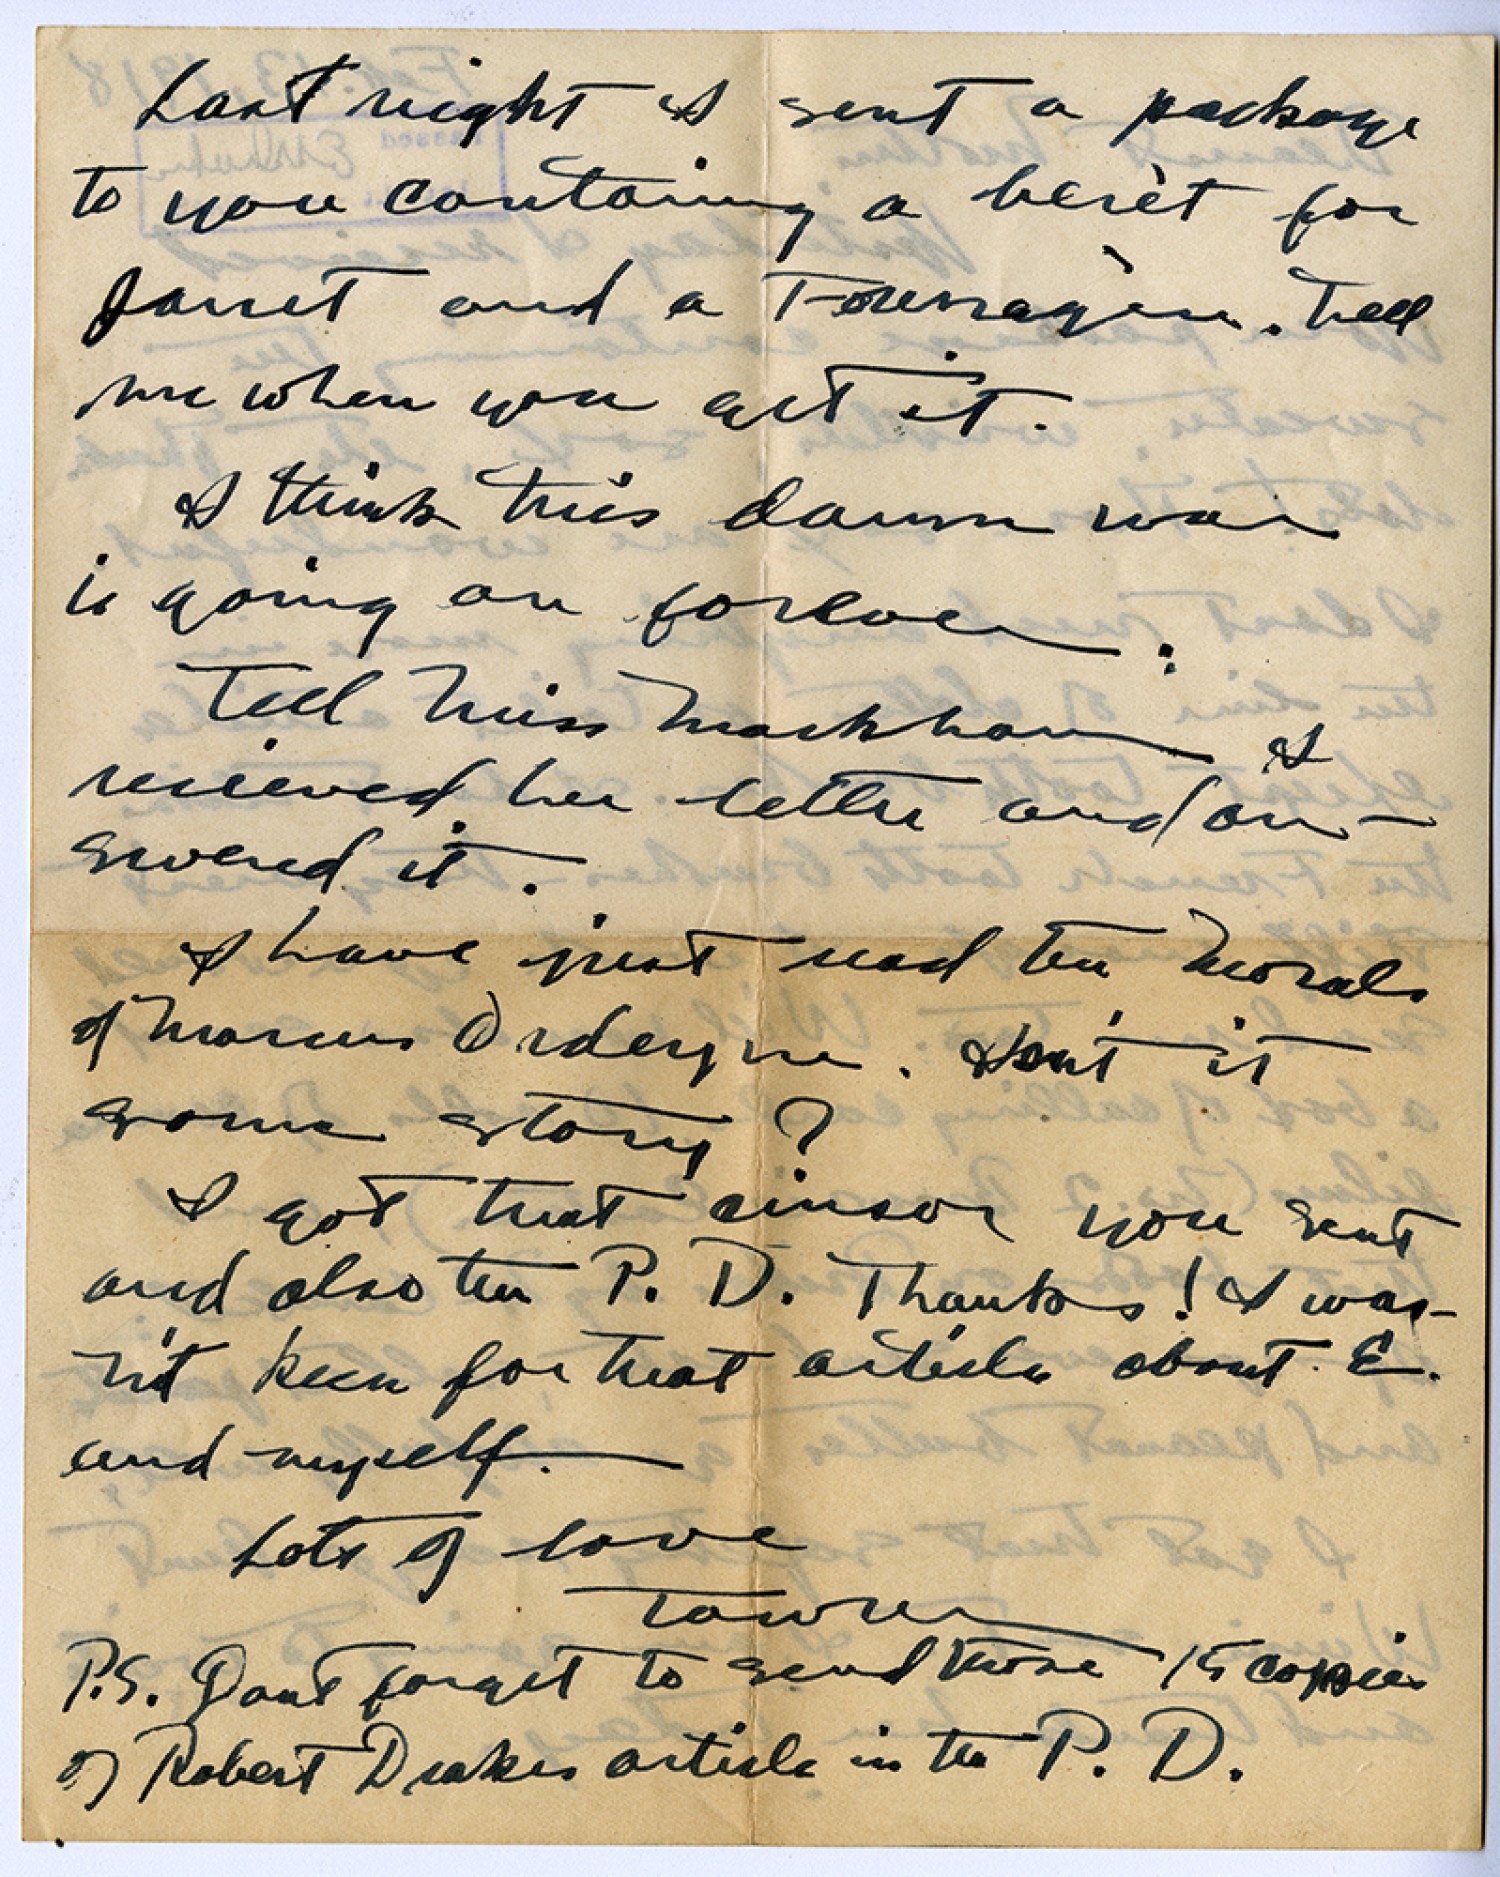 Last night I sent a package
to you containing a berèt for
Janet and a Fourragère. Tell
me when you get it.
I think this damn war
is going on forever.
Tell Miss Markham I
recieved her letter and an-
swered it.
I have just read the Morals
of Marcus Ordeyne. Isn't it
some story?
I got that cinsor you sent
and also the P. D. Thanks! I was-
n't keen for that article about E.
and myself.
Lots of love
Towne
P.S. Dont forget to send those 15 copies
of Robert Drakes article in the P. D.